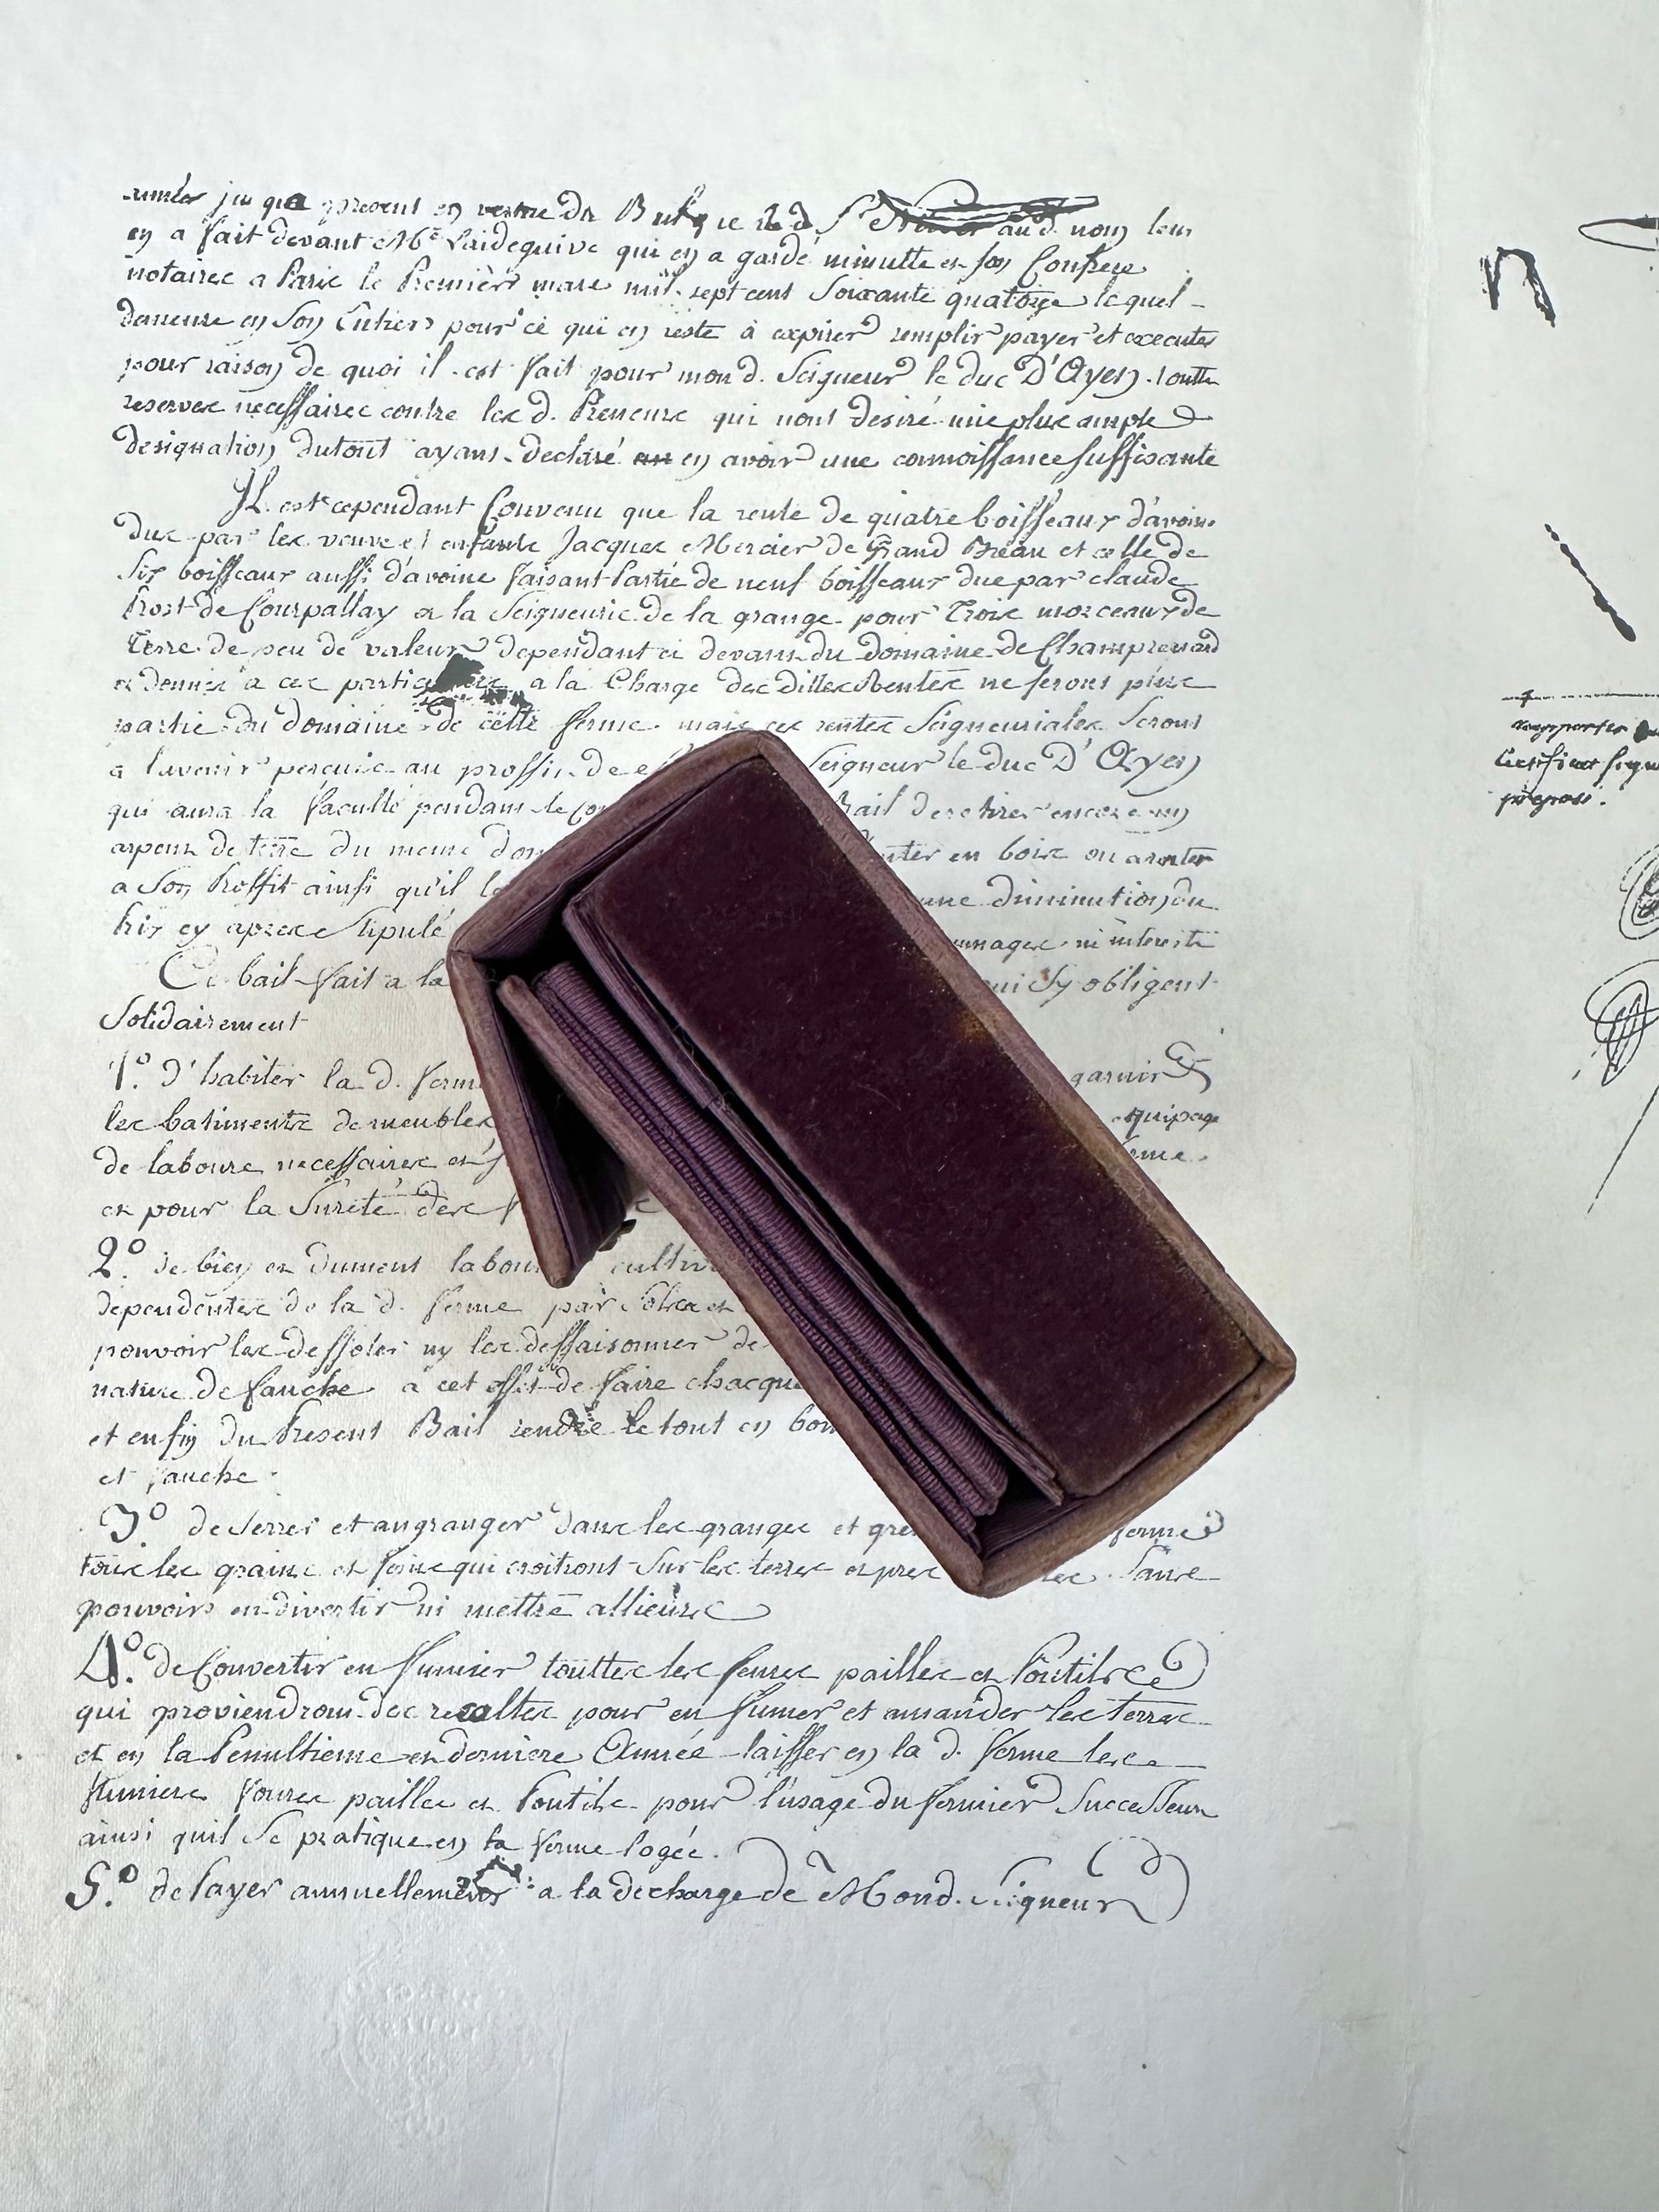 années jusqu'a present en vertu du Bail que led. Sr aud. nom leur
en a fait devant Me. Laideguive qui en a gardé minutte et son Confrere
notaires a Paris le Premier mars mil sept cent Soixante quatorze lequel
demeure en Son Entier pour ce qui en reste à expirer remplir payer et executer
pour raison de quoi il est fait pour mond. Seigneur le duc D'Ayen. toutte
reserves necessaires contre les d. Preneurs qui nont desiré une plus ample
designation dutout ayans declaré en avoir une connoissance suffisante
Il est cependant Convenu que la rente de quatre boisseaux d'avoine
due par les veuve et enfants Jacques Mercier de Grand Breau et celle de
Six boisseaux aussi d'avoine faisant Partie de neuf boisseaux due par claude
Prost de Courpallay a la Seigneurie de la grange pour Trois morceaux de
Terre de peu de valeur dependant ci devant du domaine de Champrenard
et donnés a ces particuliers a la Charge des dittes Rentes ne seront plus
partie du domaine de cette ferme mais ces rentes Seigneuriales Seront
a l'avenir percuës au proffit de Seigneur le duc D'Ayen
qui aura la faculté pendant le Bail de retirer encore un
arpent de terre du meme en bois ou
a Son Proffit ainsi qu'il une diminution du
Prix cy apres Stipulé ni interests
Ce bail fait a la qui Sy obligent
Solidairement
1.º d'habiter la d. ferme garnir
les batiments de meubles equipage
de labours necessaires et ferme.
et pour la Sureté des
2.º de bien et dument cultiv
dependentes de la d. ferme par Soles et
pouvoir les dessoler ny les dessaisonner de
nature de fauche a cet effet de faire chacque
et enfin du Present Bail rendre le tout en bon
et fauche.
3.º de Serrer et angranger dans les granges et ferme
tous les grains et foins qui croitront Sur les terres et prés Sans
pouvoir en divertir ni mettre allieurs
4.º de Convertir en fumier touttes les feures pailles et Poutils
qui proviendront des recoltes pour en fumer et amander les terres
et en la Penultieme et derniere Année laisser en la d. ferme les
fumiers foures pailles et Poutils pour l'usage du fermier Successeur
ainsi quil Se pratique en la ferme logée.
5.º de Payer annuellement a la decharge de Mond. Seigneur
rapporter
Certificat Signé
preposé.